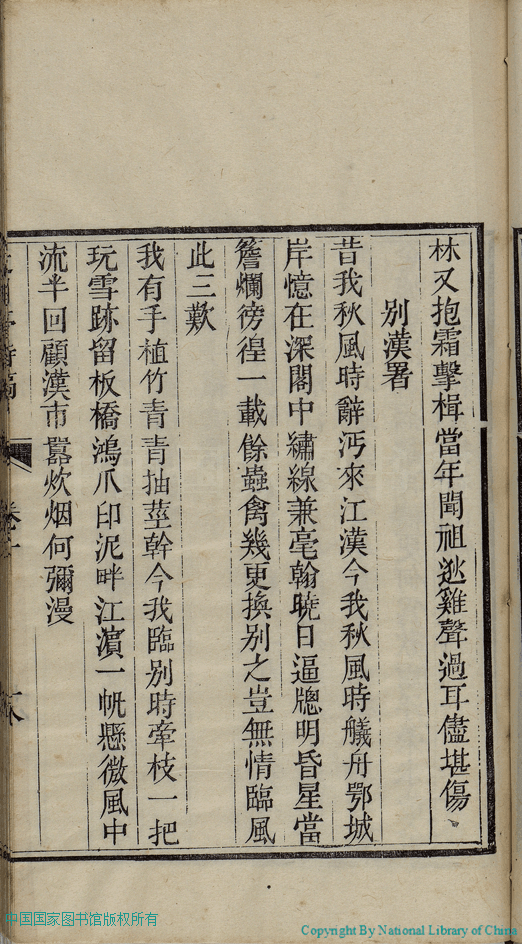 林又抱霜擊楫當年聞祖逖雞聲過耳儘堪傷
別漢署
昔我秋風時辭沔來江漢今我秋風時艤舟鄂城
岸憶在深閣中繡線兼毫翰曉日逼牕明昏星當
簷爛徬徨一載餘蟲禽幾更換別之豈無情臨風
此三歎
我有手植竹青青抽莖幹今我臨別時牽枝一把
玩雪跡留板橋鴻爪印泥畔江濱一帆懸微風中
流半回顧漢市囂炊烟何彌漫
中国国家图书馆版权所有
Copyright By National Library of China